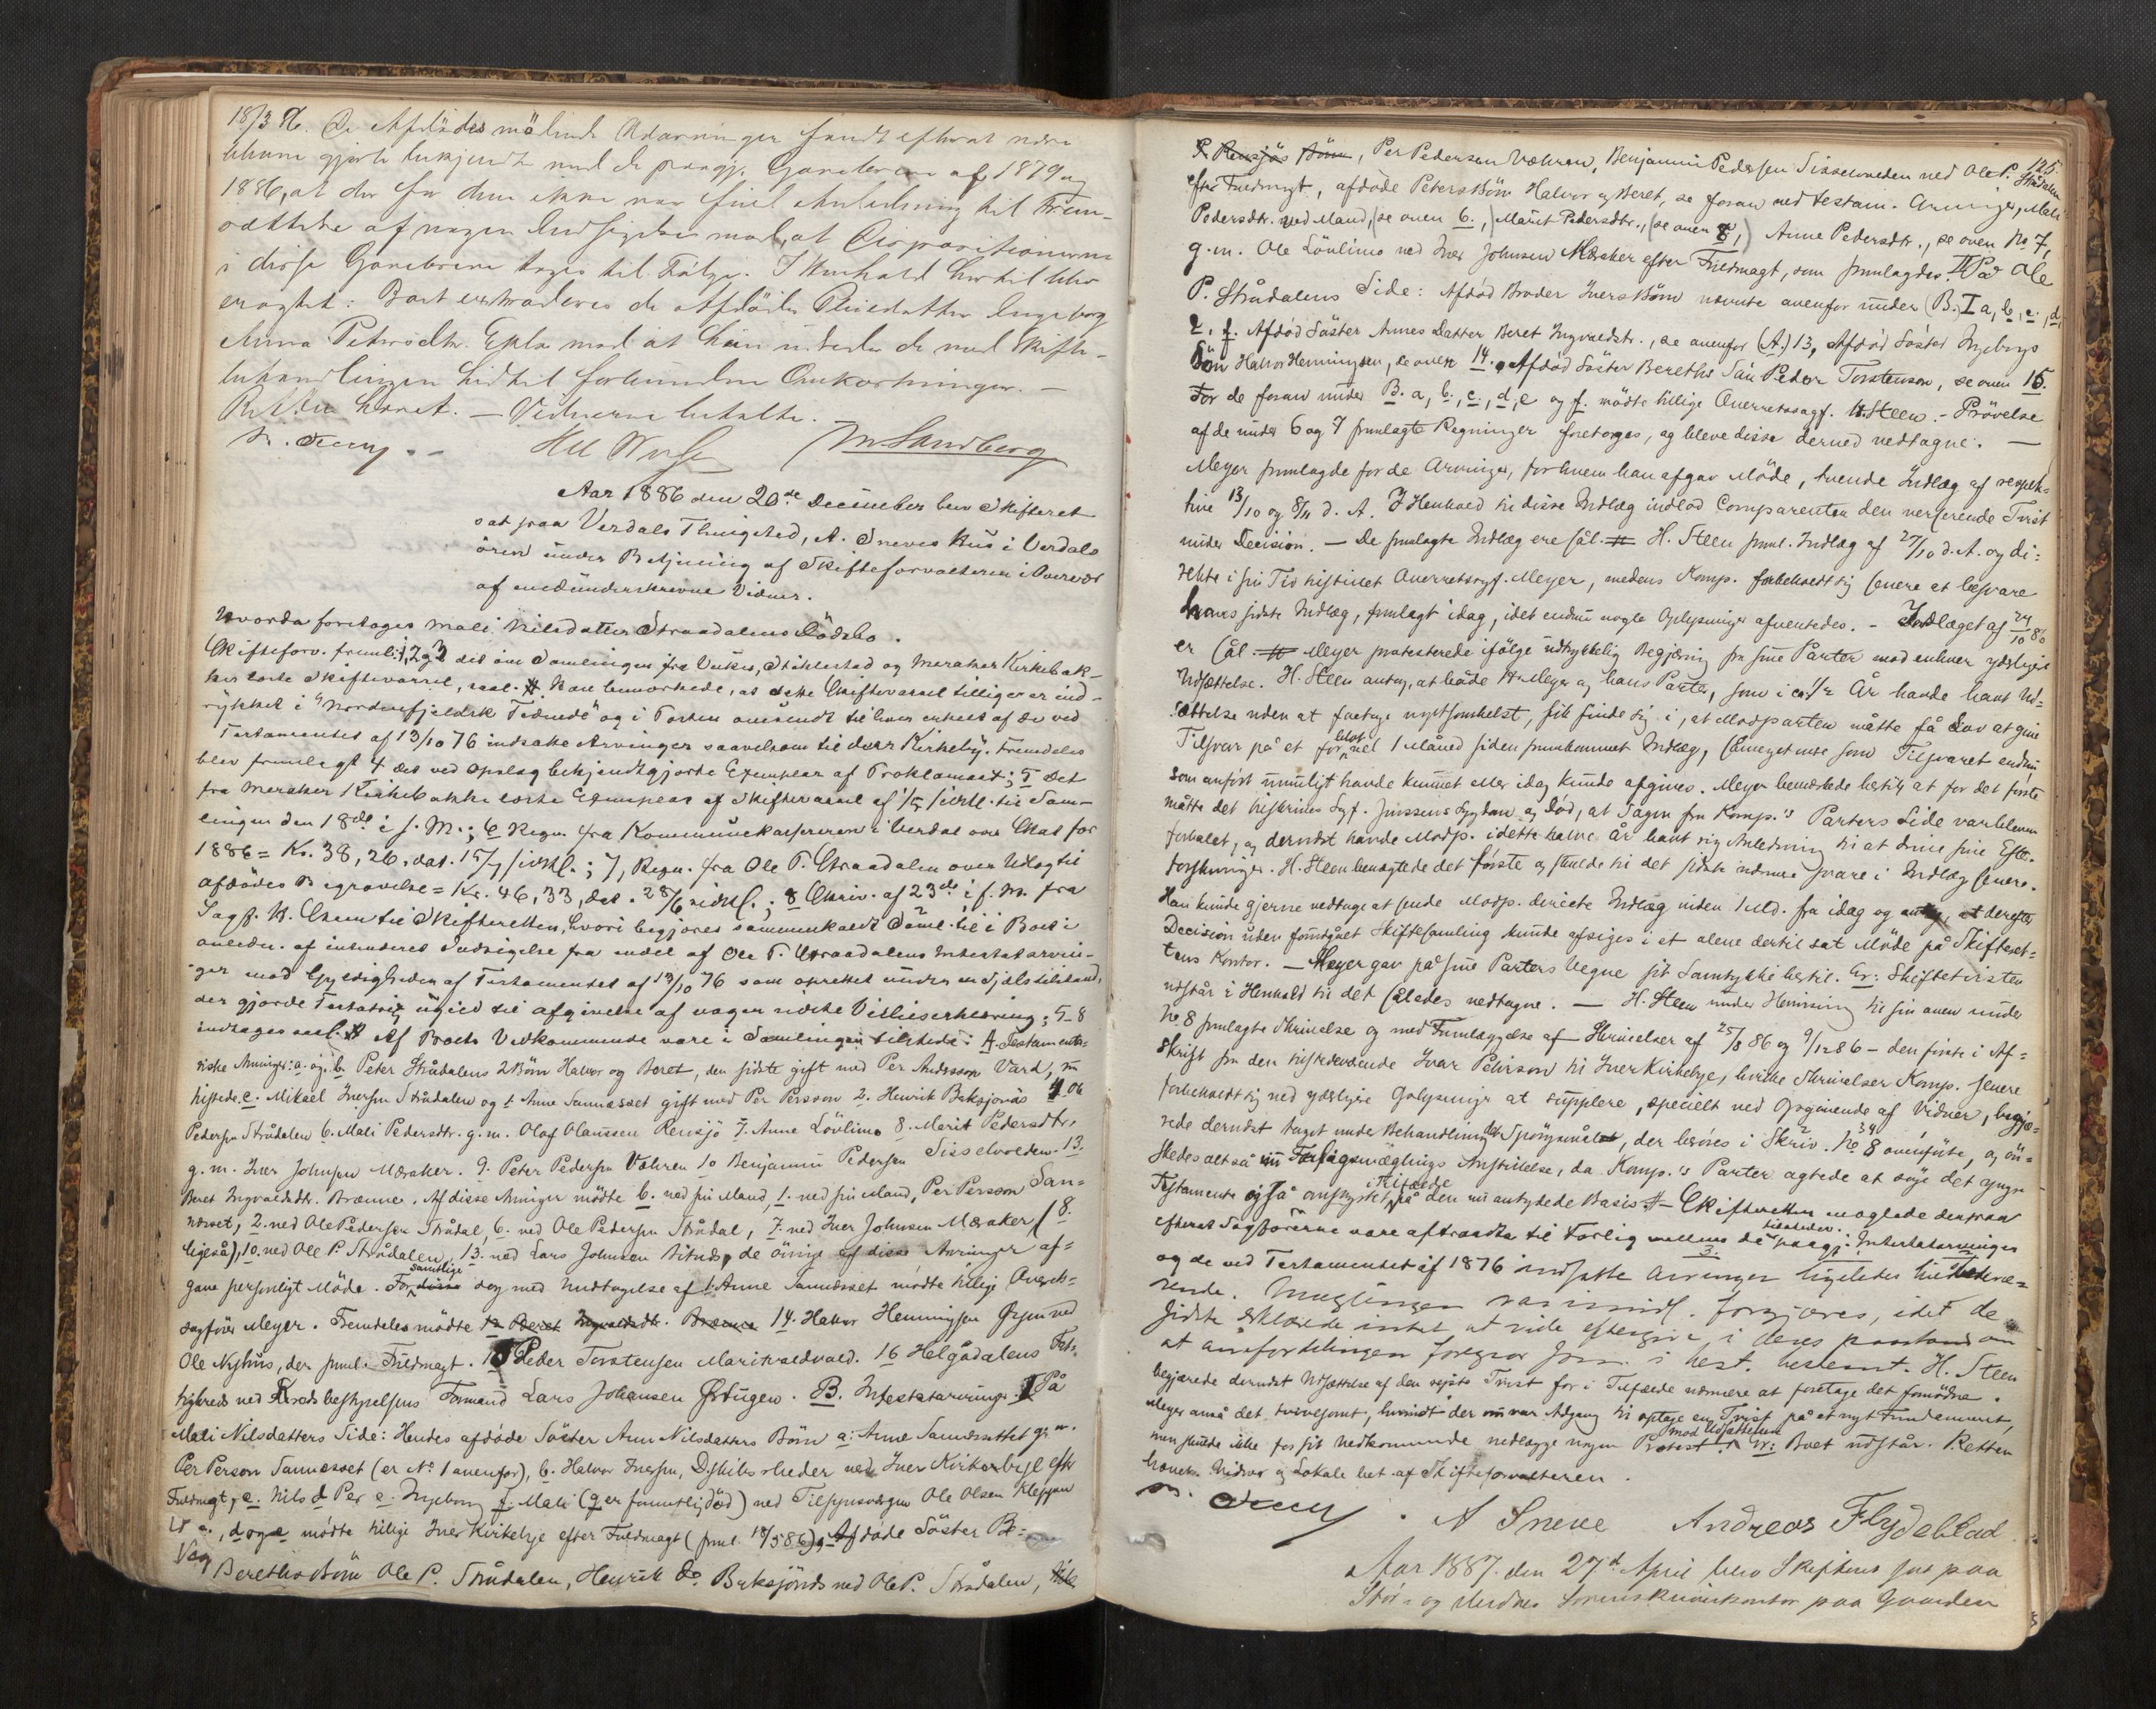 18/3 86. De Afdödes mödende Arvinger fandt efterat være
blevne gjorte bekjendt med de paagj. Gavebreve af 1879 og
1886, at der for dem ikke var fuld Anledning til Frem-
sættelse af nogen Indsigelse mod, at Dispositionerne
i disse Gavebreve toges til Følge. I Henhold hertil blev
eragtet: Boet extraderes de Afdödes Pleiedatter Ingeborg
Anna Petersdtr. Eplo mod at hun udreder de med Skifte-
behandlingen hidtil forbundne Omkostninger. —
Retten hævet. — Vidnerne betalte.
M Sandberg
Aar 1886 den 20de December blev Skifteret
sat paa Verdals Thingsted, A. Sneves Hus i Verdals
ören under Betjening af Skifteforvalteren i Overvær
af medunderskrevne Vidner.
Hvorda foretoges Mali Nilsdatter Straadalens Dödsbo.
Skifteforv. freml. 1, 2 og 3 det om Samlingen fra Vukus, Stiklestad og Meraker Kirkebak-
ker læste Skiftevarsel, saal. # Han bemærkede, at dette Skiftevarsel tillige er ind-
rykket i "Nordenfjeldsk Tidende" og i Posten oversendt til hver enkelt af de ved
Testamentet af 13/10 76 indsatte Arvinger saavelsom til Iver Kirkeby. Fremdeles
blev fremlagt 4 det ved Opslag bekjendtgjorte Exemplar af Proklamaet; 5 det
fra Meraker Kirkebakke læste Exemplar af Skiftevarsel af 1/5 sidstl. til Sam-
lingen den 18de i s. M.; 6 Regn. fra Kommunekassereren i Verdal over Skat for
1886 = Kr. 38,26, dat. 15/7 sidstl.; 7, Regn. fra Ole P. Straadalen over Udlæg til
afdödes Begravelse = Kr. 46,33, dat. 28/6 sidstl.; 8 Skriv. af 23de i f. M. fra
Sagf. H. Steen til Skifteretten, hvori begjæres sammenkaldt Saml. til i Boet i
anledn. af intenderet Indsigelse fra endel af Ole P. Straadalens Intestatarvin-
ger mod Gyldigheden af Testamentet af 13/10 76 som oprettet under en Sjælstilstand,
der gjorde Testatrix uskikket til afgivelse af nogen sidste Villieserklæring; 5-8
indtages saal. # Af Boets Vedkommende vare i Samlingen tilstede: A. Testamenta-
riske Arvinger: a. og b. Peter Strådalens 2 Börn Halvor og Beret, den sidste gift med Per Andersson Vard, m
histede. c. Mikael Iversen Strådalen og 1 Anne Sannesset gift med Per Persson 2. Henrik Buksjönäs 4 Ole
Pedersen Strådalen 6. Mali Pedersdtr. g. m. Olaf Olaussen Rensjö 7. Anne Lövlimo 8. Marit Pedersdtr.
g. m. Iver Johnsen Meraker. 9. Peter Pedersen Vohren 10 Benjamin Pedersen Sisselvolden. 13.
Beret Ingvaldsdtr. Brænne. Af disse Arvinger mödte b. ved sin Mand, 1. ved sin Mand, Per Persson San-
næsset, 2. ved Ole Pedersen Strådal, 6. ved Ole Pedersen Strådal, 7. ved Iver Johnsen Meraker (8.
ligeså), 10. ved Ole P. Strådalen, 13. ved Lars Johnsen de övrige af disse Arvinger af-
gave personligt Möde. For samtlige dog med Undtagelse af 1 Anne Sannæsset mödte tillige Overrets-
sagförer Meyer. Fremdeles mödte 14. Halvor Henningsen ved
Ole Nyhus, der freml. Fuldmagt. 15 Peder Torstensen Maritvoldvald. 16 Helgådalens
ved Heredsbestyrelsens Formand Lars Johansen Östugen. B. Intestatarvinger. I På
Mali Nilsdatters Side: Hendes afdöde Söster Ann Nilsdatters Börn a: Anne Sannæsset g. m.
Per Person Sannæsset (er No 1 ovenfor), b. Halvor Iversen, ved Iver Kirkeby efter
Fuldmagt, c. Nils d Per e. Ingeborg f. Mali (g er død) ved Ole Olsen Kleppen
d og e mödte tillige Iver Kirkeby efter Fuldmagt (freml. 18/5 86) Afdöde Söster
Berethes Börn Ole P. Strådalen, Henrik do. Buksjönäs ved Ole P. Strådalen,
125.
P. Rensjös Börn, Per Pedersen Vohren, Benjamin Pedersen Sisselvolden ved Ole P. Strådalen
efter Fuldmagt, afdöde Peters Börn Halvor og Beret, se foran ved testam. Arvinger, Mali
Pedersdtr. ved Mand, (se oven 6.,) Marit Pedersdtr., (se oven 8,) Anne Pedersdtr., se oven No 7,
g. m. Ole Lövlimo ved Iver Johnsen Meraker efter Fuldmagt, som fremlagdes II På Ole
P. Strådalens Side: Afdöd Broder Ivers Börn nævnte ovenfor under (B.) I a, b, c, d,
e, f. Afdöd Söster Annes Datter Beret Ingvaldsdtr., se ovenfor (A.) 13, Afdöd Söster Ingeborgs
Sön Halvor Henningsen, se oven 14. Afdöd Söster Berethes Sön Peder Torstensen, se oven 15.
For de foran under B. a, b, c, d, e og f. mödte tillige Overretssagf. H. Steen. - Prövelse
af de under 6 og 7 fremlagte Regninger foretoges, og bleve disse derved vedtagne. —
Meyer fremlagde for de Arvinger, for hvem han afgav Möde, tvende Indlæg af respek-
tive 13/10 og 8/11 d. A. I Henhold til disse Indlæg indlod Comparenten den verserende Tvist
under Decision. — De fremlagte Indlæg ere sål. # H. Steen freml. Indlæg af 27/10 d. A. og di-
rekte i sin Tid tilstillet Overretssagf. Meyer, medens Komp. forbeholdt sig senere at besvare
hans sidste Indlæg, fremlagt idag, idet endnu nogle Oplysninger afventedes. - Indlæget af 27/10 86
er sål. # Meyer protesterede ifölge udtrykkelig Begjæring fra sine Parter mod enhver yderligere
Udsættelse. H. Steen antog, at både Hr. Meyer og hans Parter, som i ca. 1/2 År havde havt Ud-
sættelse uden at foretage nogetsomhelst, fik finde sig i, at Modparten måtte få Lov at give
Tilsvar på et for blot vel 1 Måned siden fremkommet Indlæg, såmeget mere som Tilsvaret endnu
som anfört umuligt havde kunnet eller idag kunde afgives. Meyer bemærkede hertil at for det förste
måtte det tilskrives Sgf. Jenssens Sygdom og Död, at Sagen fra Komp.'s Parters Side var bleven
forhalet, og dernæst havde Modp. i dette halve År havt rig Anledning til at drive sine Efter-
forskninger. H. Steen benægtede det förste og skulde til det sidste nærmere svare i Indlæg senere.
Han kunde gjerne vedtage at sende Modp. directe Indlæg inden 1 Md. fra idag og at derefter
Decision uden foregået Skiftesamling kunde afsiges i et alene dertil sat Möde på Skifteret-
tens Kontor. — Meyer gav på sine Parters Vegne sit Samtykke hertil. Er: Skiftetvisten
udstår i Henhold til det således vedtagne. — H. Steen under Henvisning til sin oven under
No 8 fremlagte Skrivelse og med Fremlæggelse af Skrivelser af 25/8 86 og 9/12 86 - den förste i Af-
skrift fra den tilstedeværende Ivar Pehrson til Iver Kirkeby, hvilke Skrivelser Komp. senere
forbeholdt sig ved yderligere Oplysninger at supplere, specielt ved Opgivende af Vidner, begjæ-
rede dernæst taget under Behandling det Spörgsmål, der beröres i Skriv. No 8 ovenfor, og ön-
skedes altså nu Forligsmæglings Anstillelse, da Komp.'s Parter agtede at söge det
Testamente også omstödt på den nu antydede Basis. # Skifteretten mæglede derpaa
efterat Sagförerne vare aftraadte til Forlig mellem de tilstedev. paagj. Intestatarvinger
og de ved Testamentet af 1876 indsatte Arvinger ligeledes tilstedevæ-
rende. Mæglingen var imidl. forgjæves, idet de
sidste erklærede intet at ville eftergive i deres paastand om
at arvefordelingen foregaar som i Test. bestemt. H. Steen
begjærede dernæst Udsættelse af den rejste Tvist for i Tilfælde nærmere at foretage det fornödne.
Meyer anså det tvivlsomt, hvorvidt der nu var Adgang til optage en Tvist på et nyt Fundament,
men skulde ikke for sit Vedkommende nedlægge nogen Protest mod Udsættelsen. Er: Boet udstår. Retten
hævet. Vidner og Lokale bet. af Skifteforvalteren.
A Sneve Andreas Flydeblad
Aar 1887. den 27d April blev Skifteret sat paa
Stör- og Verdals Sorenskriverkontor paa Gaarden